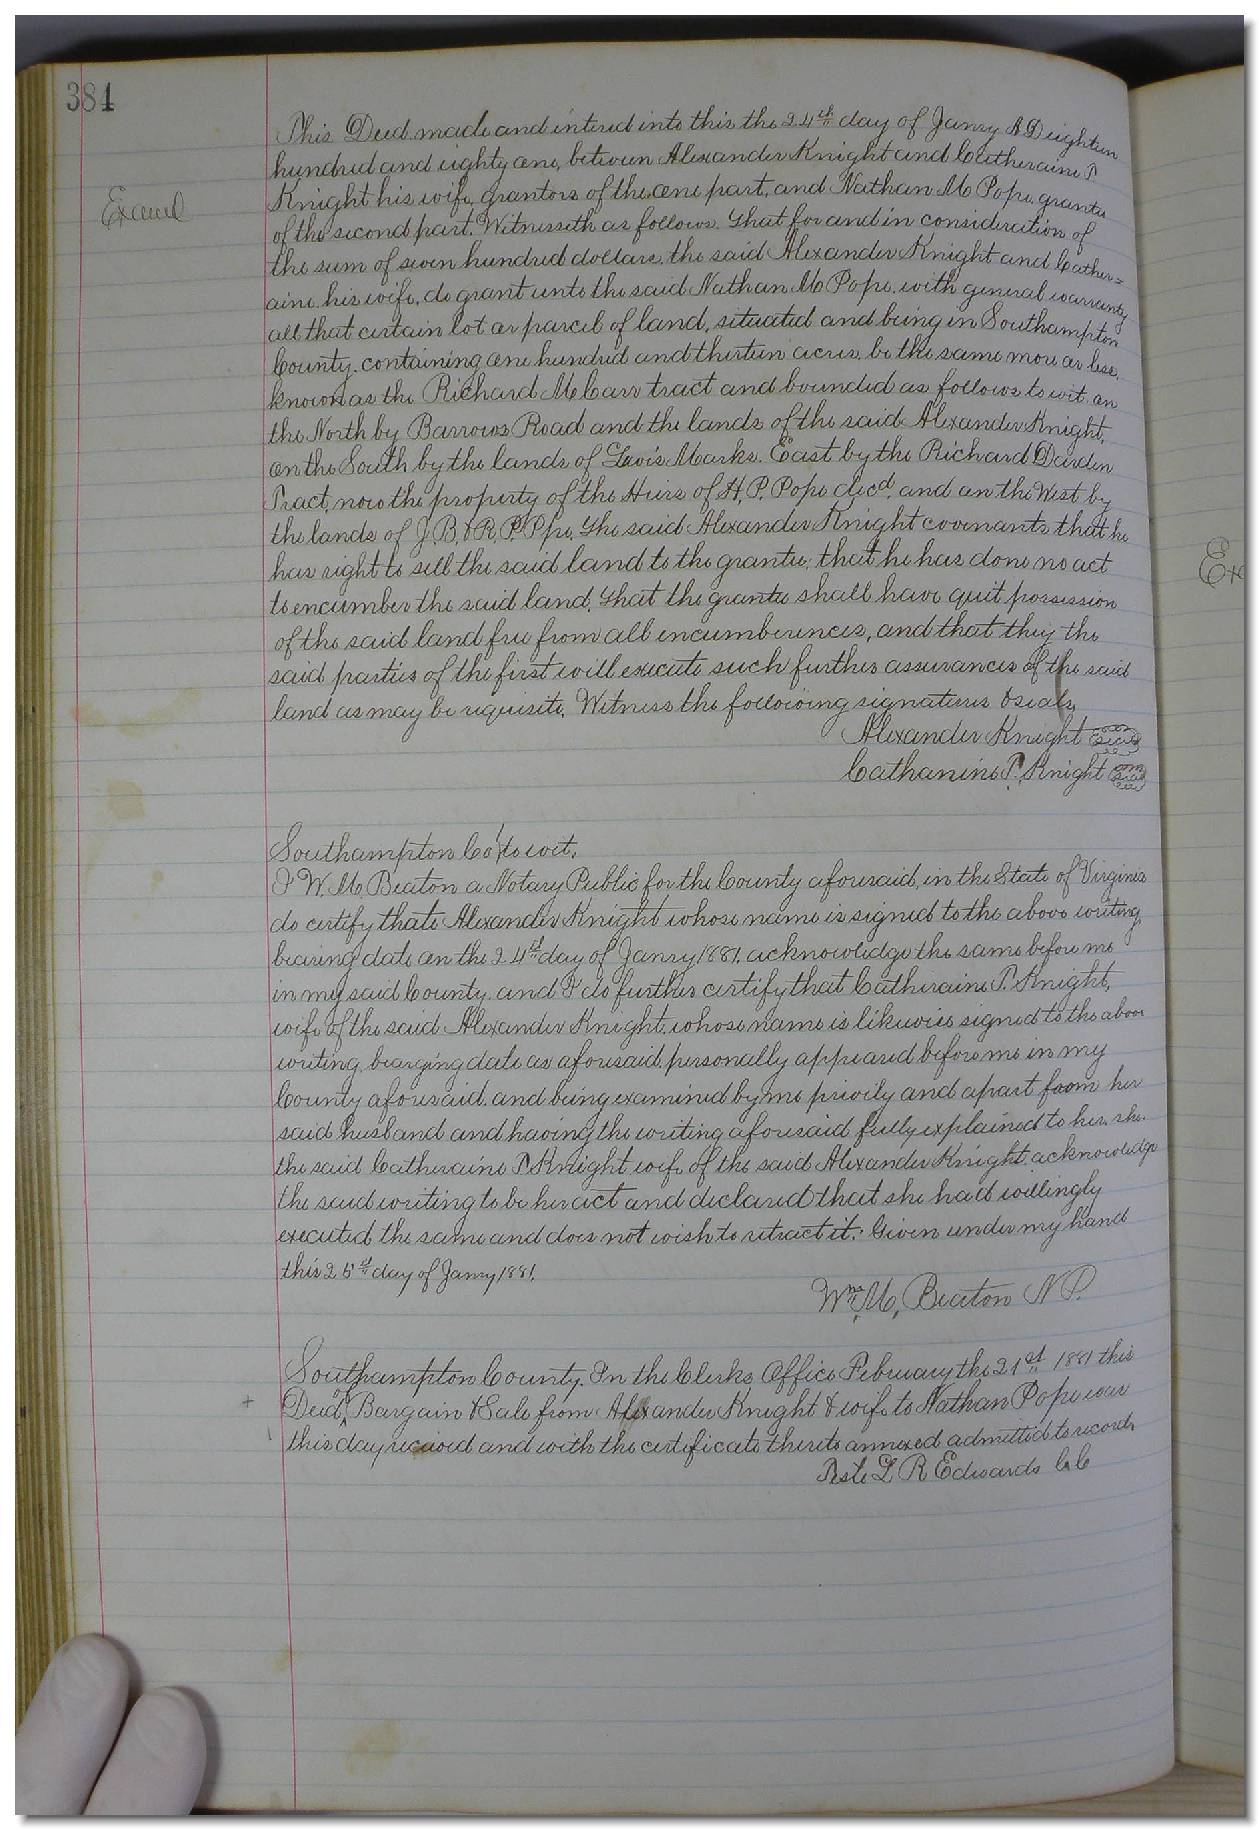 384
This Deed made and entered into this the 24th day of Janry A D eighteen
Examd
hundred and eighty one, between Alexander Knight and Catheraine P.
Knight his wife, grantors of the one part, and Nathan M Pope, grantee
of the second part. Witnesseth as follows. That for and in consideration of
the sum of seven hundred dollars, the said Alexander Knight and Cather=
aine his wife, do grant unto the said Nathan M Pope, with general warranty
all that certain lot or parcel of land, situated and being in Southampton
County, containing one hundred and thirteen acres, be the same more or less,
known as the Richard M Carr tract and bounded as follows to wit on
the North by Barrows Road and the lands of the said Alexander Knight,
on the South by the lands of Lewis Marks. East by the Richard Darden
Tract, now the property of the Heirs of H. P. Pope decd. and on the West by
the lands of J. B. & R. P. Ppe. The said Alexander Knight covenants, that he
has right to sell the said land to the grantee; that he has done no act
to encumber the said land, That the grantee shall have quit possession
of the said land free from all encumberences, and that they the
said parties of the first will execute such further assurances of the said
land as may be requisite. Witness the following signatures & seals,
Alexander Knight Seal
Cathanine P. Knight Seal
Southampton Co, to wit.
I W. M. Beaton a Notary Public for the County aforesaid, in the State of Virginia
do certify thate Alexander Knight whose name is signed to the above writing
bearing date on the 24th day of Janry 1881. acknowledge the same before me
in my said County, and I do further certify that Catheraine P. Knight,
wife of the said Alexander Knight, whose name is likewise signed to the above
writing bearging date as aforesaid, personally appeared before me in my
County aforesaid, and being examined by me privily and apart from her
said husband and having the writing aforesaid fully explained to her, she
the said Catheraine P. Knight wife of the said Alexander Knight, acknowledge
the said writing to be her act and declared that she had willingly
executed the same and does not wish to retract it. Given under my hand
this 25th day of Janry 1881.
Wm. M. Beaton N P.
Southampton County. In the Clerks Office February the 21st 1881 this
Deed of Bargain & Sale from Alexander Knight & wife to Nathan Pope was
this day received and with the certificate thereto annexed admitted to record
Teste L R Edwards C C
Ex